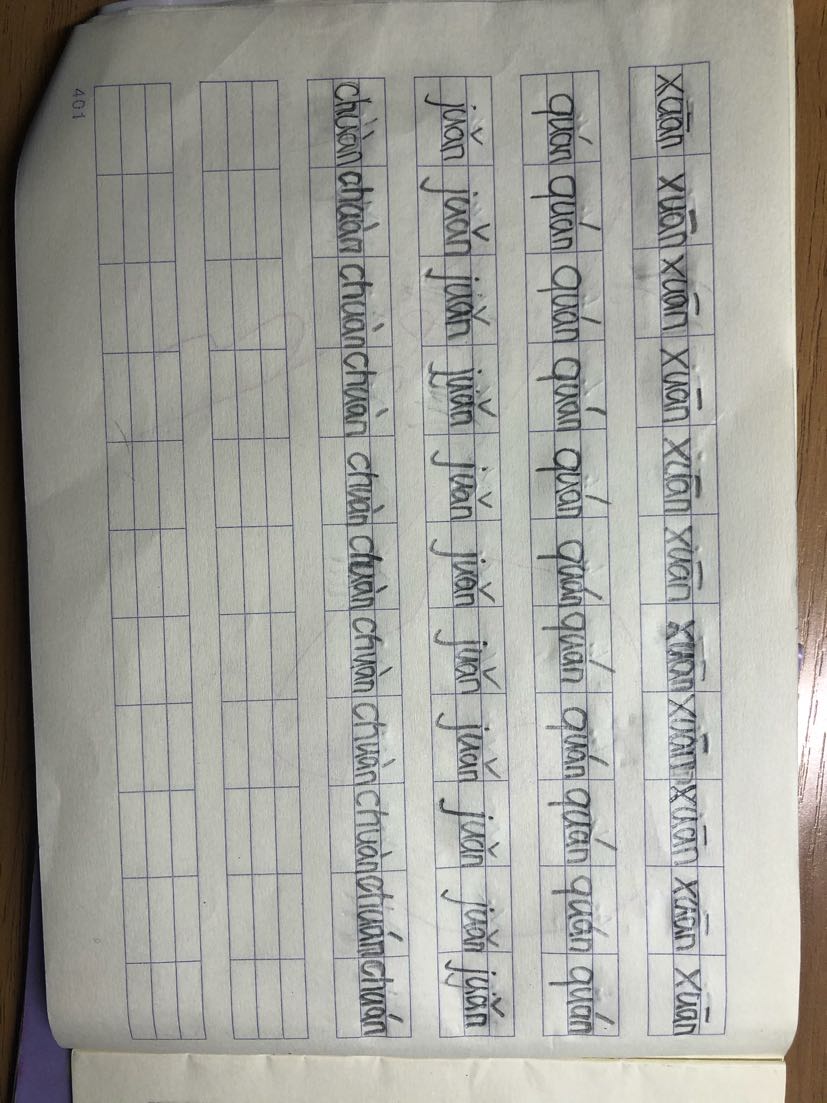 xuān xuān xuān xuān xuān xuān xuān xuān xuān xuān xuān
quán quán quán quán quán quán quán quán quán quán quán
juǎn juǎn juǎn juǎn juǎn juǎn juǎn juǎn juǎn juǎn juǎn
chuàn chuàn chuàn chuàn chuàn chuàn chuàn chuàn chuàn chuán chuán
401